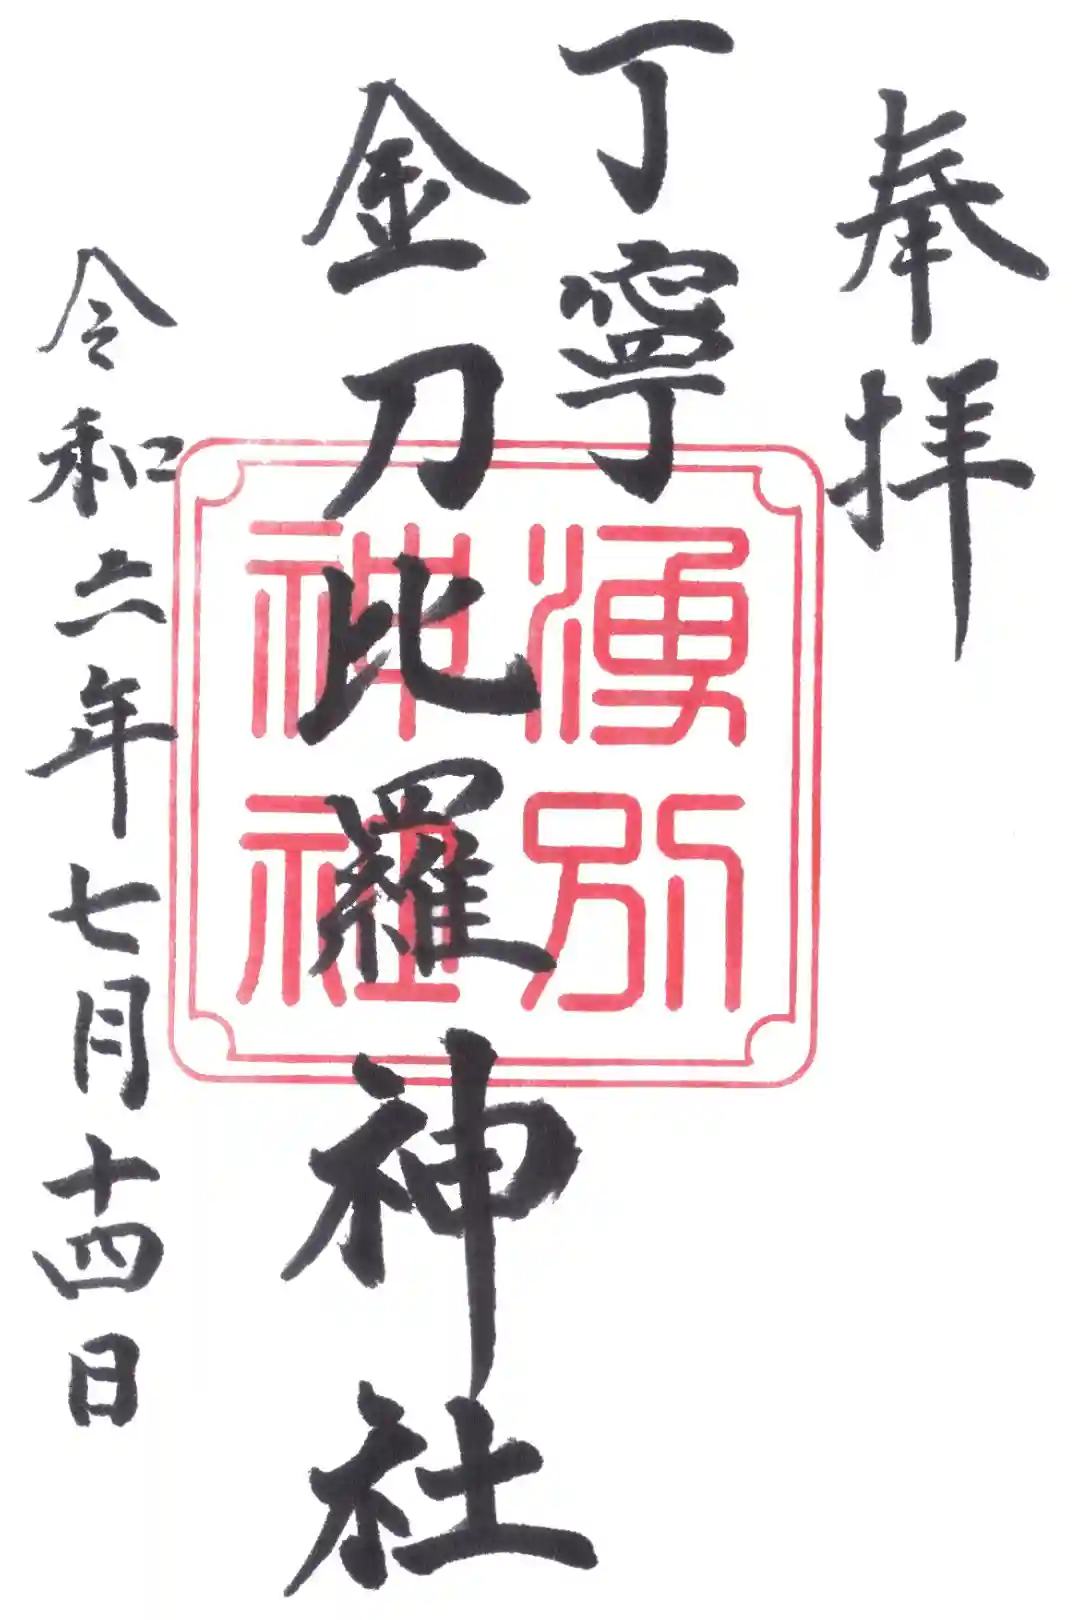 奉拝
丁寧
金刀比羅神社
令和六年七月十四日
湧別
神社